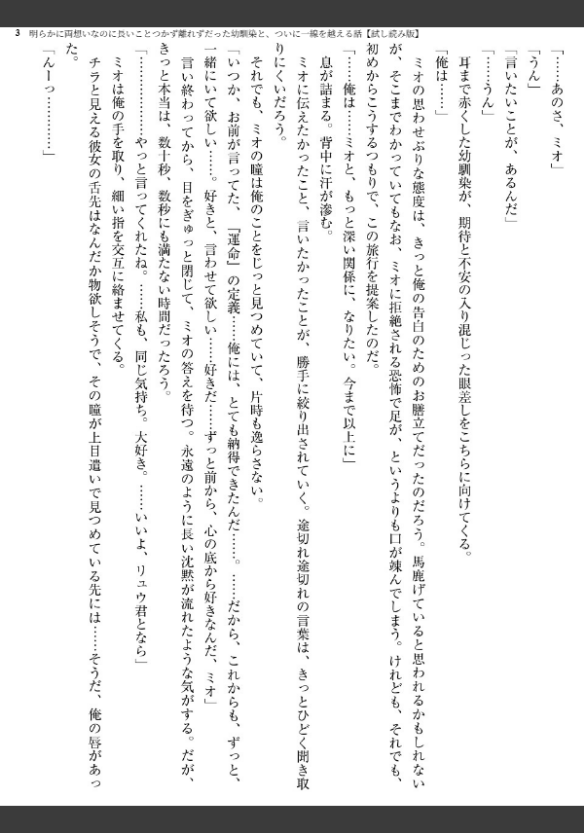 3 明らかに両想いなのに長いことつかず離れずだった幼馴染と、ついに一線を越える話【試し読み版】
「……あのさ、ミオ」
「うん」
「言いたいことが、あるんだ」
「……うん」
耳まで赤くした幼馴染が、期待と不安の入り混じった眼差しをこちらに向けてくる。
「俺は……」
ミオの思わせぶりな態度は、きっと俺の告白のためのお膳立てだったのだろう。馬鹿げていると思われるかもしれない
が、そこまでわかっていてもなお、ミオに拒絶される恐怖で足が、というよりも口が竦んでしまう。けれども、それでも、
初めからこうするつもりで、この旅行を提案したのだ。
「……俺は……ミオと、もっと深い関係に、なりたい。今まで以上に」
息が詰まる。背中に汗が滲む。
ミオに伝えたかったこと、言いたかったことが、勝手に絞り出されていく。途切れ途切れの言葉は、きっとひどく聞き取
りにくいだろう。
それでも、ミオの瞳は俺のことをじっと見つめていて、片時も逸らさない。
「いつか、お前が言ってた、『運命』の定義……俺には、とても納得できたんだ……。……だから、これからも、ずっと、
一緒にいて欲しい……。好きと、言わせて欲しい……好きだ……ずっと前から、心の底から好きなんだ、ミオ」
言い終わってから、目をぎゅっと閉じて、ミオの答えを待つ。永遠のように長い沈黙が流れたような気がする。だが、
きっと本当は、数十秒、数秒にも満たない時間だったろう。
「………………やっと言ってくれたね。……私も、同じ気持ち。大好き。……いいよ、リュウ君となら」
ミオは俺の手を取り、細い指を交互に絡ませてくる。
チラと見える彼女の舌先はなんだか物欲しそうで、その瞳が上目遣いで見つめている先には……そうだ、俺の唇があっ
た。
「んーっ…………」